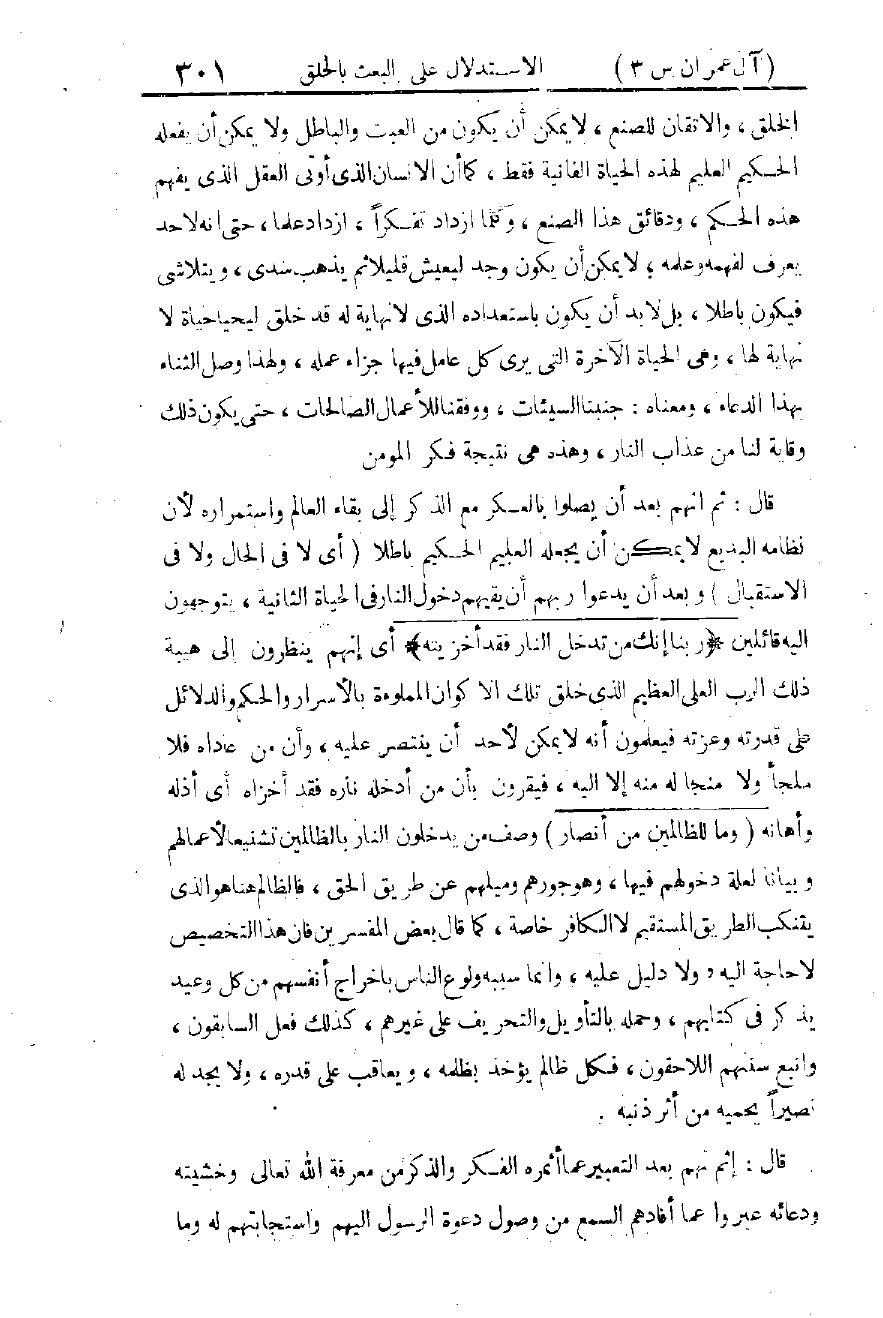 (آل عمران س ٣) الاستدلال على البعث بالخلق ٣٠١
الخلق ، والاتقان للصنع ، لا يمكن أن يكون من العبث والباطل ولا يمكن أن يفعله
الحكيم العليم لهذه الحياة الفانية فقط ، كما أن الانسان الذى أوتى العقل الذى يفهم
هذه الحكم ، ودقائق هذا الصنع ، وكلما ازداد تفكراً ، ازداد علما ، حتى انه لا حد
يعرف لفهمه وعلمه ، لا يمكن أن يكون وجد ليعيش قليلا ثم يذهب سدى ، ويتلاشى
فيكون باطلا ، بل لابد أن يكون باستعداده الذى لا نهاية له قد خلق ليحيا حياة لا
نهاية لها ، وهى الحياة الآخرة التى يرى كل عامل فيها جزاء عمله ، ولهذا وصل الثناء
بهذا الدعاء ، ومعناه : جنبنا السيئات ، ووفقنا للأعمال الصالحات ، حتى يكون ذلك
وقاية لنا من عذاب النار ، وهذه هى نتيجة فكر المؤمن
قال : ثم انهم بعد أن يصلوا بالفكر مع الذكر إلى بقاء العالم واستمراره لأن
نظامه البديع لا يمكن أن يجعله العليم الحكيم باطلا ( أى لا فى الحال ولا فى
الاستقبال ) وبعد أن يدعوا ربهم أن يقيهم دخول النار فى الحياة الثانية ، يتوجهون
اليه قائلين ﴿ربنا إنك من تدخل النار فقد أخزيته﴾ أى إنهم ينظرون إلى هيبة
ذلك الرب العلى العظيم الذى خلق تلك الاكوان المملوءة بالأسرار والحكم والدلائل
على قدرته وعزته فيعلمون أنه لا يمكن لأحد أن ينتصر عليه ، وأن من عاداه فلا
ملجأ ولا منجا له منه إلا اليه ، فيقرون بأن من أدخله ناره فقد أخزاه أى أذله
وأهانه ( وما للظالمين من أنصار ) وصف من يدخلون النار بالظالمين تشنيعا لأعمالهم
وبيانا لعلة دخولهم فيها ، وهو جورهم وميلهم عن طريق الحق ، فالظالم هنا هو الذى
يتنكب الطريق المستقيم لا الكافر خاصة ، كما قال بعض المفسرين فان هذا التخصيص
لا حاجة اليه ، ولا دليل عليه ، وانما سببه ولوع الناس باخراج أنفسهم من كل وعيد
يذكر فى كتابهم ، وحمله بالتأويل والتحريف على غيرهم ، كذلك فعل السابقون ،
واتبع سننهم اللاحقون ، فكل ظالم يؤخذ بظلمه ، ويعاقب على قدره ، ولا يجد له
نصيراً يحميه من أثر ذنبه .
قال : إنهم بعد التعبير عما أثمره الفكر والذكر من معرفة الله تعالى وخشيته
ودعائه عبروا عما أفادهم السمع من وصول دعوة الرسول اليهم واستجابتهم له وما